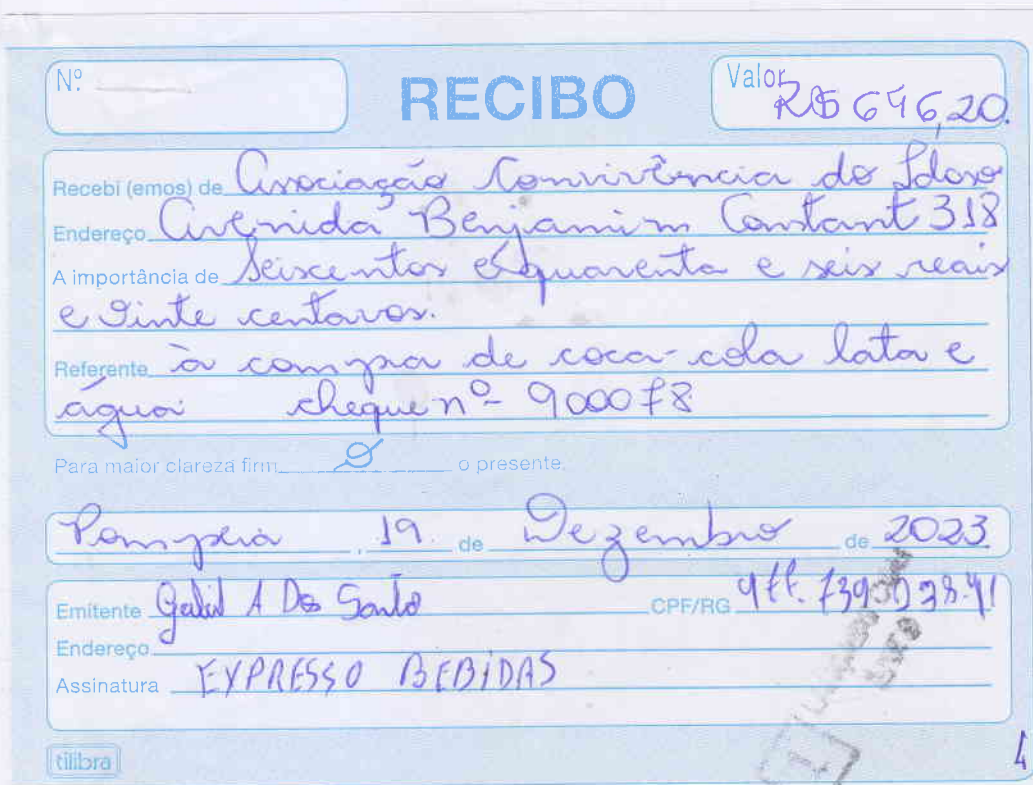 Nº
RECIBO
Valor R$ 646,20.
Recebi (emos) de Associação Convivência do Idoso
Endereço Avenida Benjamim Constant 318
A importância de Seiscentos e quarenta e seis reais
e vinte centavos.
Referente à compra de coca-cola lata e
água cheque nº 900078
Para maior clareza firm o presente.
Pompeia, 19 de Dezembro de 2023
Emitente A Dos Santo CPF/RG
Endereço
Assinatura EXPRESSO BEBIDAS
tilibra